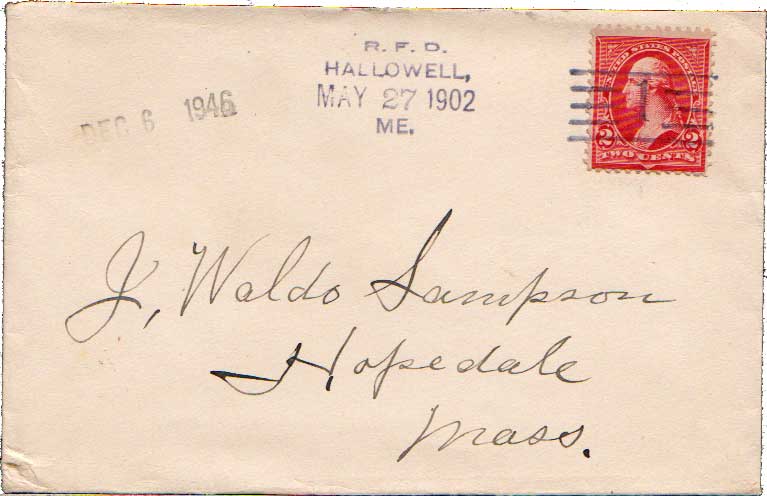 R. F. D.
HALLOWELL,
MAY 27 1902
ME.
DEC 6 1946
UNITED STATES POSTAGE
1
2 2
TWO CENTS
J. Waldo Sampson
Hopedale
Mass.